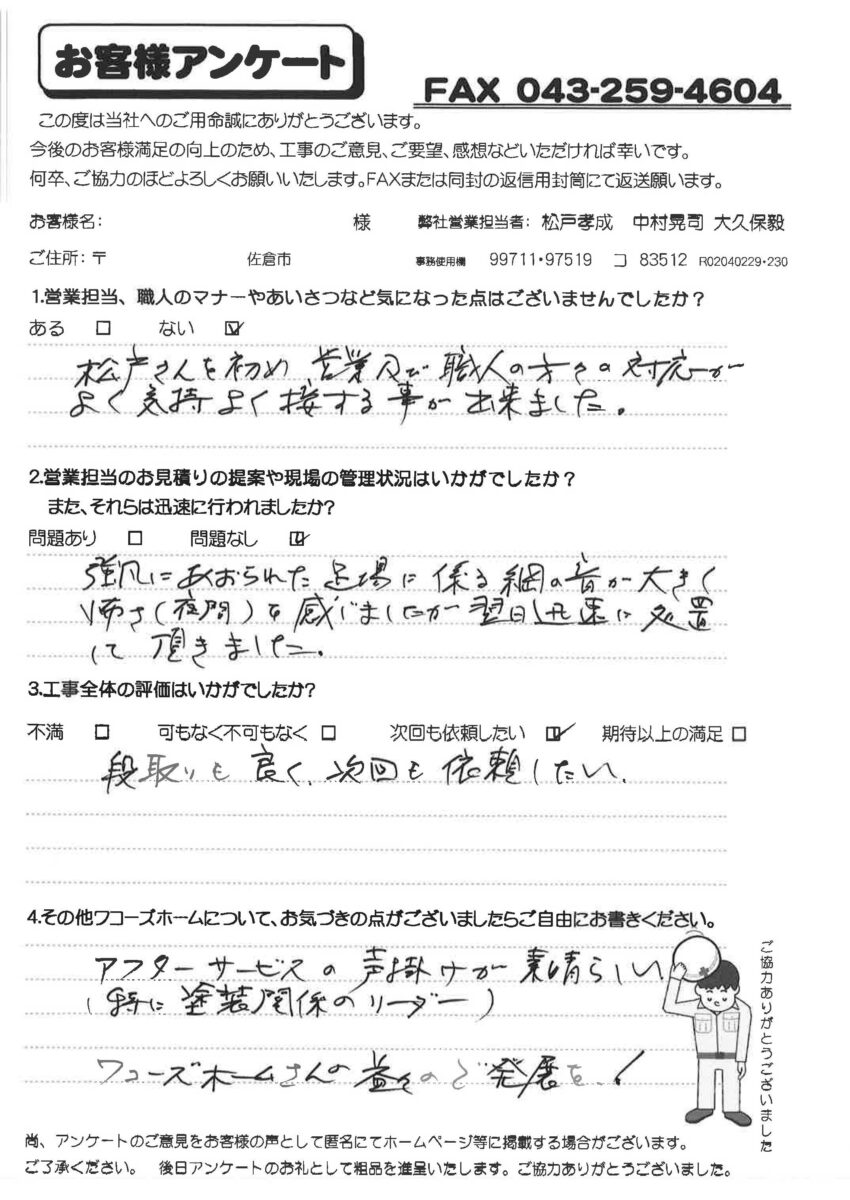 お客様アンケート
FAX 043-259-4604
この度は当社へのご用命誠にありがとうございます。
今後のお客様満足の向上のため、工事のご意見、ご要望、感想などいただければ幸いです。
何卒、ご協力のほどよろしくお願いいたします。FAXまたは同封の返信用封筒にて返送願います。
お客様名： 様 弊社営業担当者： 松戸孝成 中村晃司 大久保毅
ご住所：〒 佐倉市 事務使用欄 99711・97519 コ 83512 R02040229・230
1.営業担当、職人のマナーやあいさつなど気になった点はございませんでしたか？
ある □ ない ☑
松戸さんを初め 営業及び職人の方々の対応が
よく気持よく接する事が出来ました。
2.営業担当のお見積りの提案や現場の管理状況はいかがでしたか？
また、それらは迅速に行われましたか?
問題あり □ 問題なし ☑
強風にあおられた足場に係る網の音が大きく
怖さ(夜間)を感じましたが翌日迅速に処置
して頂きました。
3.工事全体の評価はいかがでしたか?
不満 □ 可もなく不可もなく □ 次回も依頼したい ☑ 期待以上の満足 □
段取りも良く、次回も依頼したい。
4.その他ワコーズホームについて、お気づきの点がございましたらご自由にお書きください。
アフターサービスの声掛けが素晴らしい
(特に塗装関係のリーダー)
ワコーズホームさんの益々のご発展を、!
ご協力ありがとうございました
尚、アンケートのご意見をお客様の声として匿名にてホームページ等に掲載する場合がございます。
ご了承ください。 後日アンケートのお礼として粗品を進呈いたします。ご協力ありがとうございました。